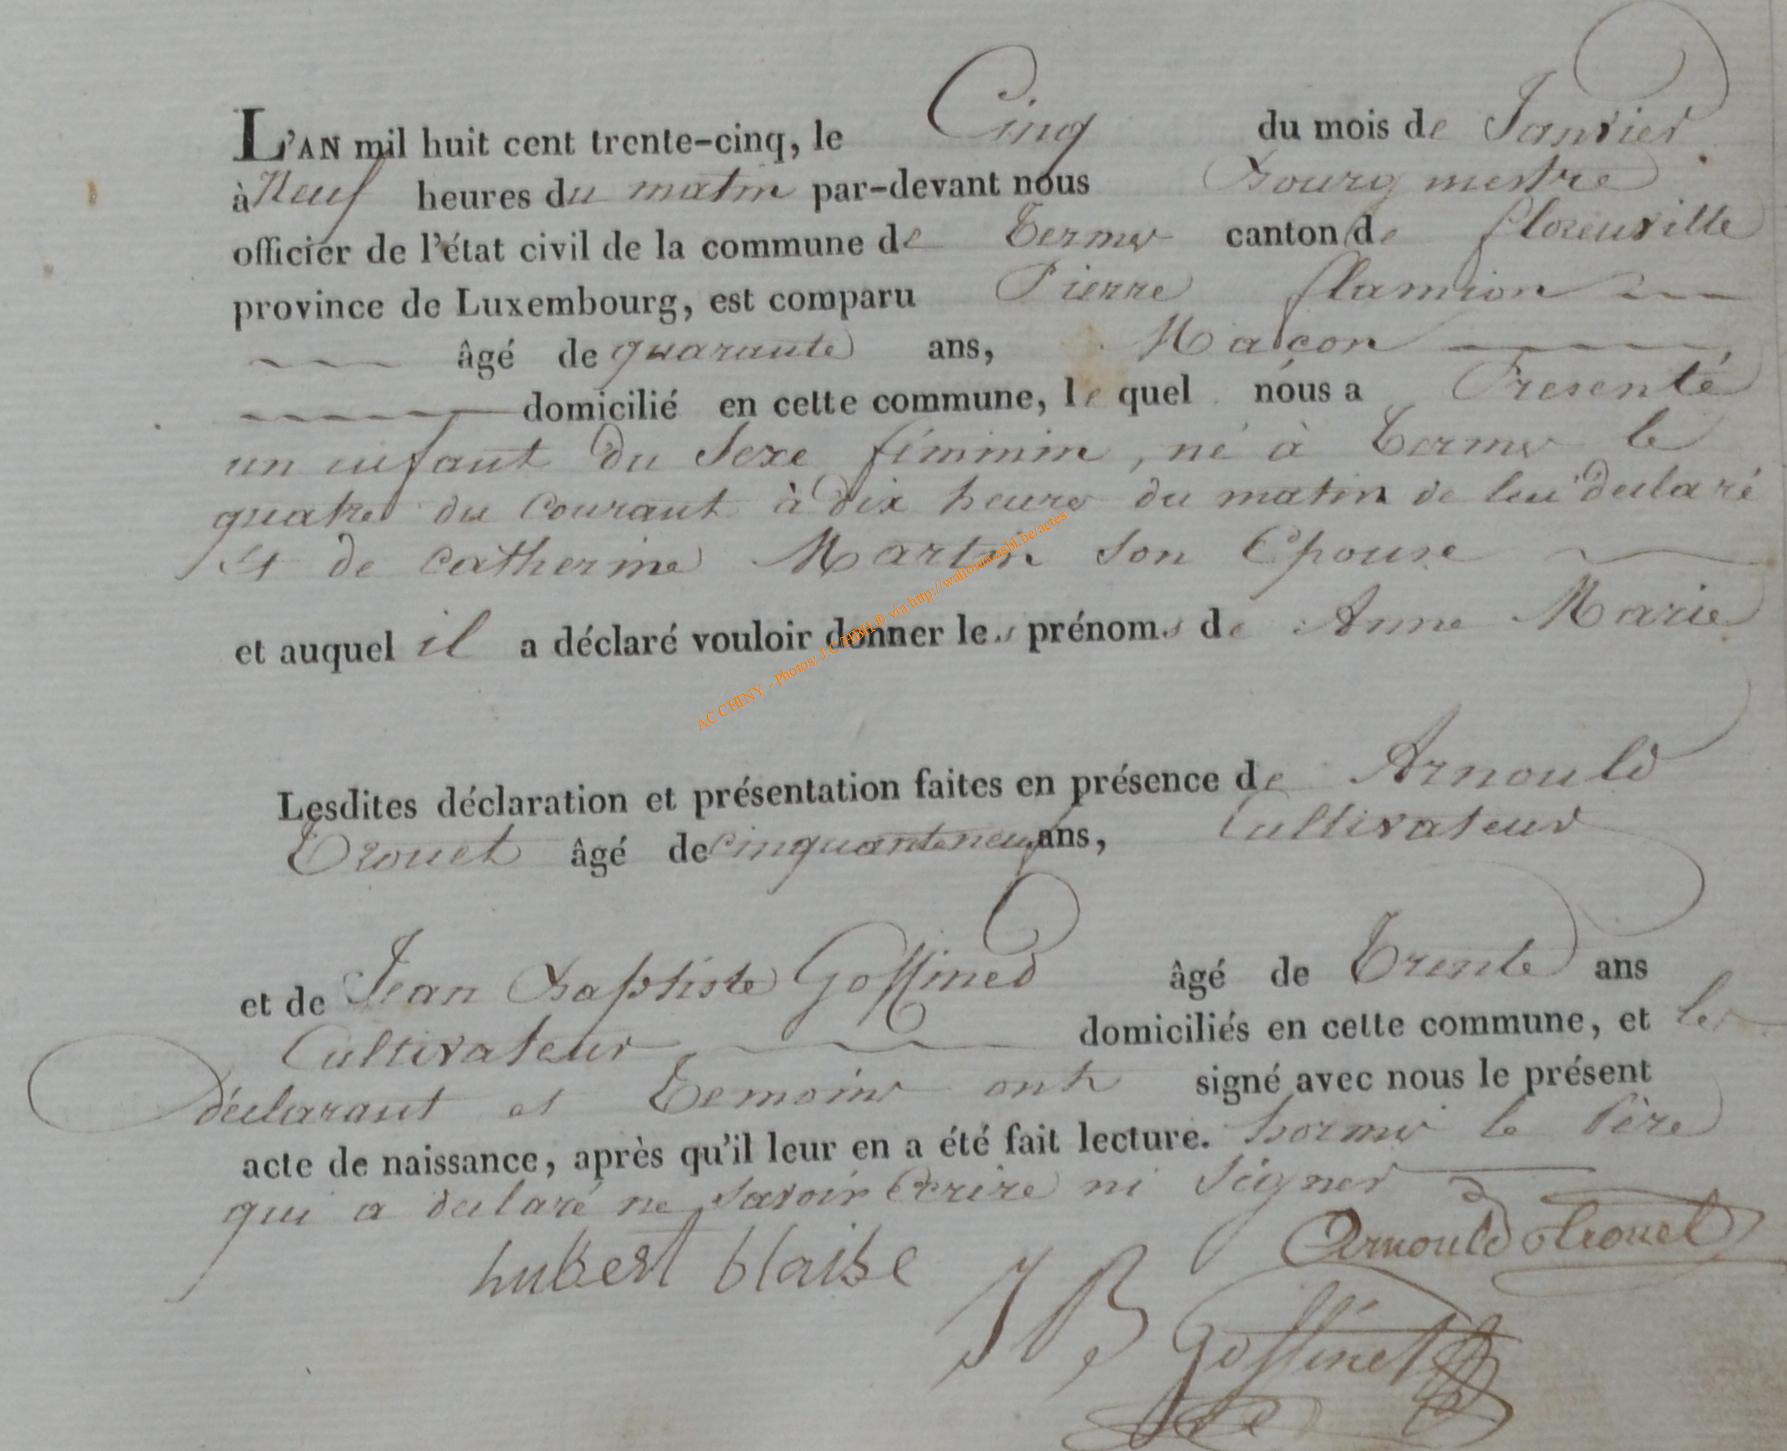 L'AN mil huit cent trente-cinq, le Cinq du mois de Janvier
à Neuf heures du matin par-devant nous Bourgmestre
officier de l'état civil de la commune de Termes canton de florenville
province de Luxembourg, est comparu Pierre flamion
âgé de quarante ans, Maçon
domicilié en cette commune, lequel nous a Presenté
un enfant du Sexe féminin, né à Termes le
quatre du Courant à dix heures du matin de lui declaré
et de catherine Martin Son Epouse
et auquel il a déclaré vouloir donner les prénoms de Anne Marie
AC CHINY - Photos: via http://wallonia-asbl.be/actes
Lesdites déclaration et présentation faites en présence de Arnould
Trouet âgé de cinquante neuf ans, Cultivateur
et de Jean Baptiste Goffined âgé de Trente ans
Cultivateur domiciliés en cette commune, et les
déclarant et Temoins ont signé avec nous le présent
acte de naissance, après qu'il leur en a été fait lecture. hormis le Père
qui a declaré ne Savoir Ecrire ni Signer
hubert blaise Arnould Trouet
J B Goffinet